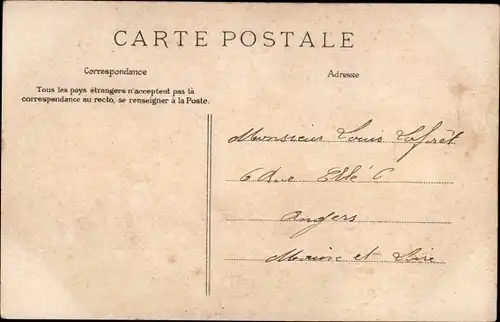 CARTE POSTALE
Correspondance
Adresse
Tous les pays étrangers n'acceptent pas la
correspondance au recto, se renseigner à la Poste.
Monsieur Louis
6 Rue
Angers
Maine et Loire